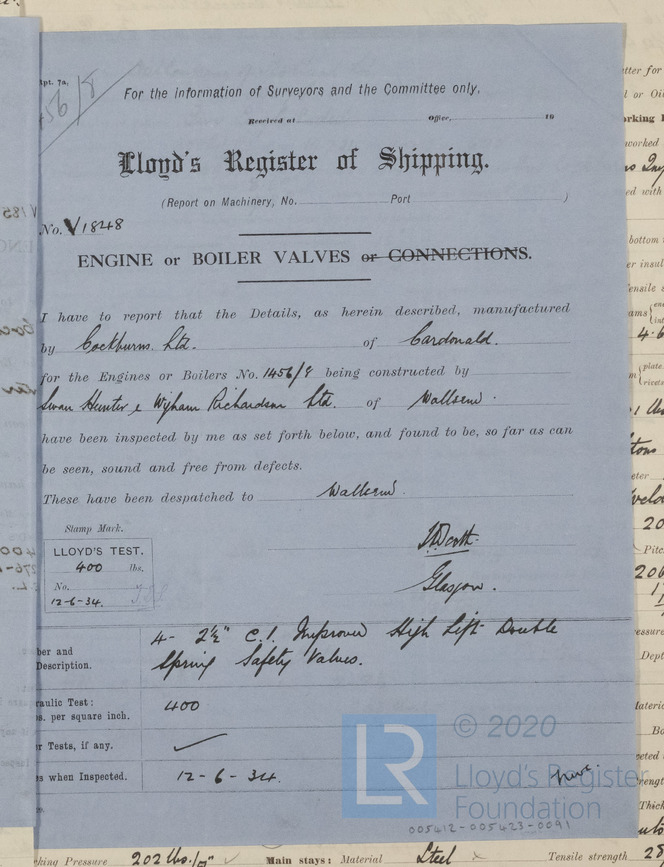 pt. 7a.
56/8
For the information of Surveyors and the Committee only,
Received at Office, 19
Lloyd's Register of Shipping.
(Report on Machinery, No. Port )
No. V1848
ENGINE or BOILER VALVES or CONNECTIONS.
I have to report that the Details, as herein described, manufactured
by Cockburns Ltd. of Cardonald.
for the Engines or Boilers No. 1456/8 being constructed by
Swan Hunter & Wigham Richardson Ltd. of Wallsend.
have been inspected by me as set forth below, and found to be, so far as can
be seen, sound and free from defects.
These have been despatched to Wallsend.
Stamp Mark.
LLOYD'S TEST.
400 lbs.
No.
12-6-34.
Glasgow.
ber and
Description.
4- 2½" C.I. Improved High Lift Double
Spring Safety Valves.
raulic Test:
s. per square inch.
400
r Tests, if any.
s when Inspected.
12-6-34.
LR
© 2020
Lloyd's Register
Foundation
005412-005423-0091
king Pressure 202 lbs./□" Main stays: Material Steel Tensile strength 28